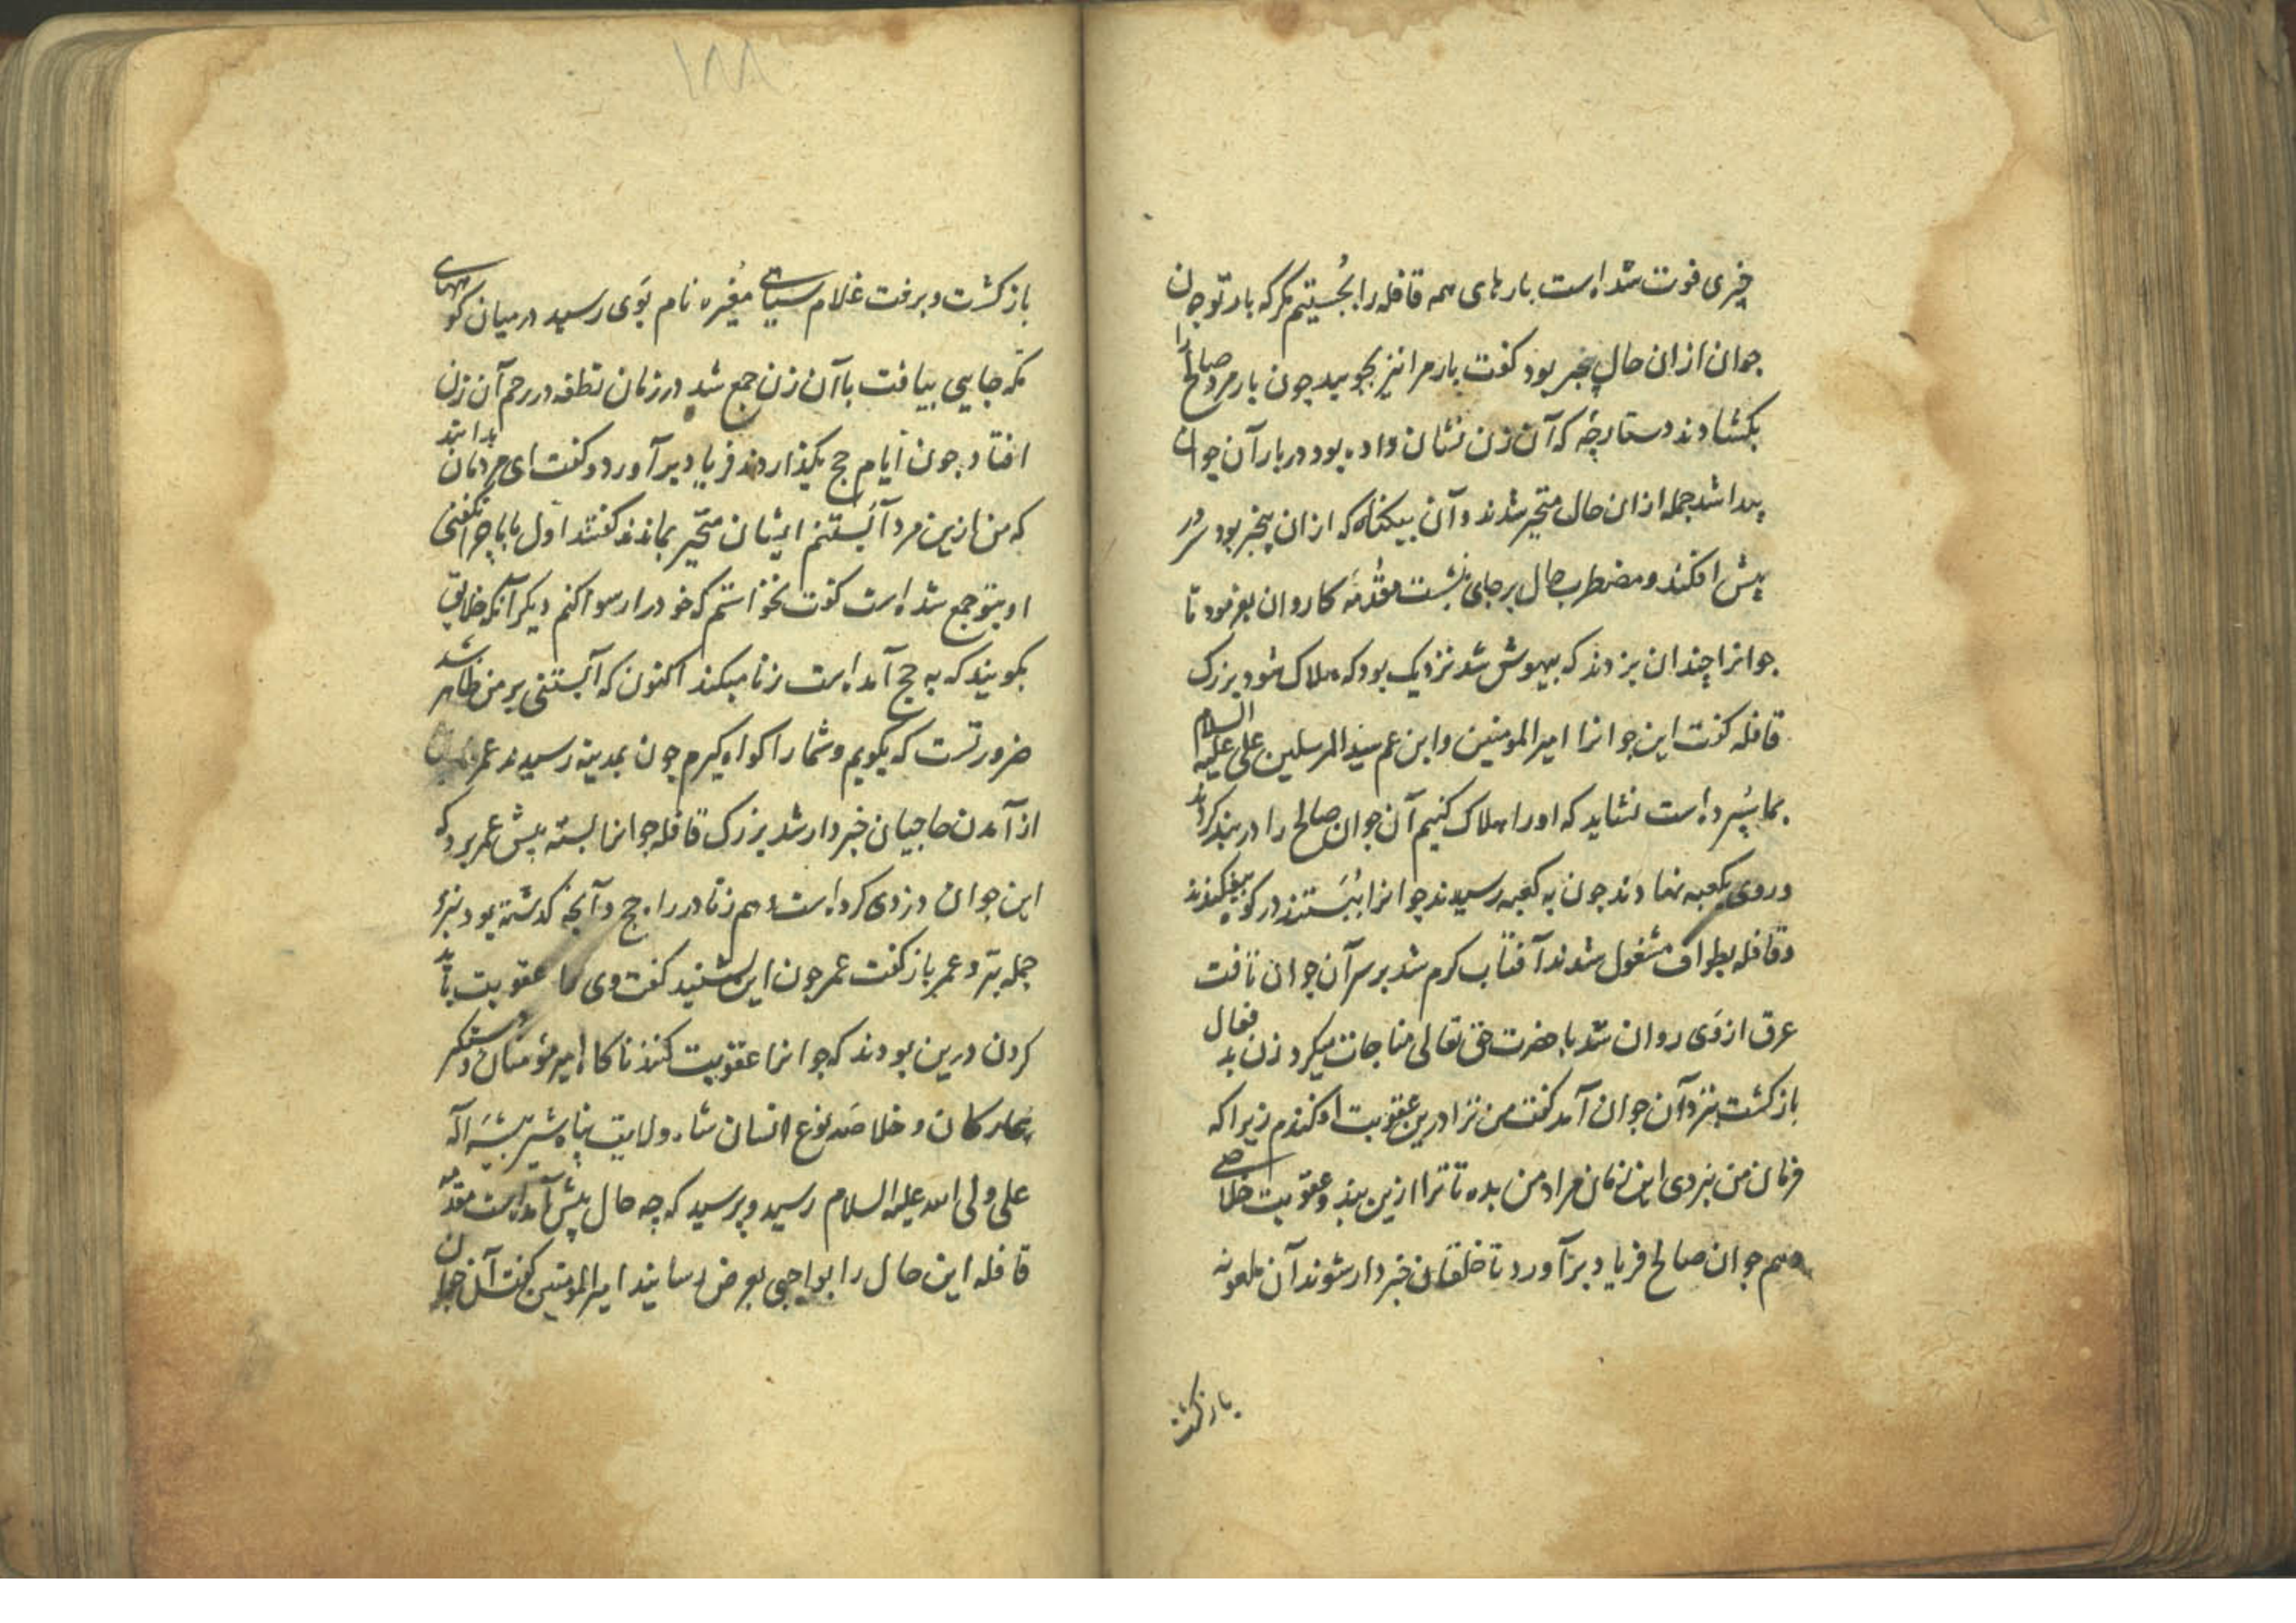 چیزی فوت شده است بارهای همه قافله را بجُستیم مگر که بار تو چون
جوان ازان حال بیخبر بود کفت بار مرا نیز بجویید چون بار مرد صالح را
بکشادند دستارچه که آن زن نشان داده بود در بار آن جوان
پیدا شد جمله ازان حال متحیر شدند و آن بیکناه که ازان بیخبر بود سر در
پیش افکند و مضطرب حال بر جای نشست مقدّمه کاروان بفرمود تا
جوانرا چندان بزدند که بیهوش شد نزدیک بود که هلاک شود بزرک
قافله کفت این جوانرا امیر المومنین و ابن عم سید المرسلین علی علیه السلام
بما سپرده است نشاید که اورا هلاک کنیم آن جوان صالح را در بند کردند
و روی بکعبه نهادند چون به کعبه رسیدند جوانرا ببَستند در کو بیفکندند
و قافله بطواف مشغول شدند آفتاب کرم شد بر سر آن جوان تافت
عرق از وَی روان شد با حضرت حق تعالی مناجات میکرد زن بد فعال
باز کشت بنزد آن جوان آمد کفت من ترا درین عقوبت افکندم زیرا که
فرمان من نبردی این زمان مراد من بده تا ترا ازین بند و عقوبت خلاصی
دهم جوان صالح فریاد برآورد تا خلقان خبردار شوند آن ملعونه
باز کشت
۱۸۸
باز کشت و برفت غلام سیاهی مُغیره نام بوَی رسید در میان کوههای
مکه جایی بیافت با آن زن جمع شد در زمان نطفه در رحم آن زن
افتاد چون ایّام حج بکذاردند فریاد برآورد و کفت ای مردمان بدانید
که من ازین مرد آبَستنم ایشان متحیّر بماندند کفتند اوّل با ما چرا نکفتی
او بتو جمع شده است کفت نخواستم که خودرا رسوا کنم دیکر آنکه خلایق
بکویند که به حج آمده است زنا میکند اکنون که آبستنی بر من ظاهر شد
ضرورتست که بکویم و شمارا کواه کیرم چون بمدینه رسیدند عمر
از آمدن حاجیان خبردار شد بزرک قافله جوانرا بسته پیش عمر برد که
این جوان دزدی کرده است و هم زنا در راه حج و آنچه کذشته بود بنزد
جمله بنزد عمر باز کفت عمر چون این بشنید کفت وی را عقوبت باید
کردن درین بودند که جوانرا عقوبت کنند ناکاه امیر مؤمنان و دستکیر
بیچارکان و خلاصه نوع انسان شاه ولایت پناه شیر بیشَه اله
علی ولی الله علیه السلام رسید و پرسید که چه حال پیش آمده است مقدّمه
قافله این حال را بواجبی بعرض رسانید امیر المومنین کفت آن جوان